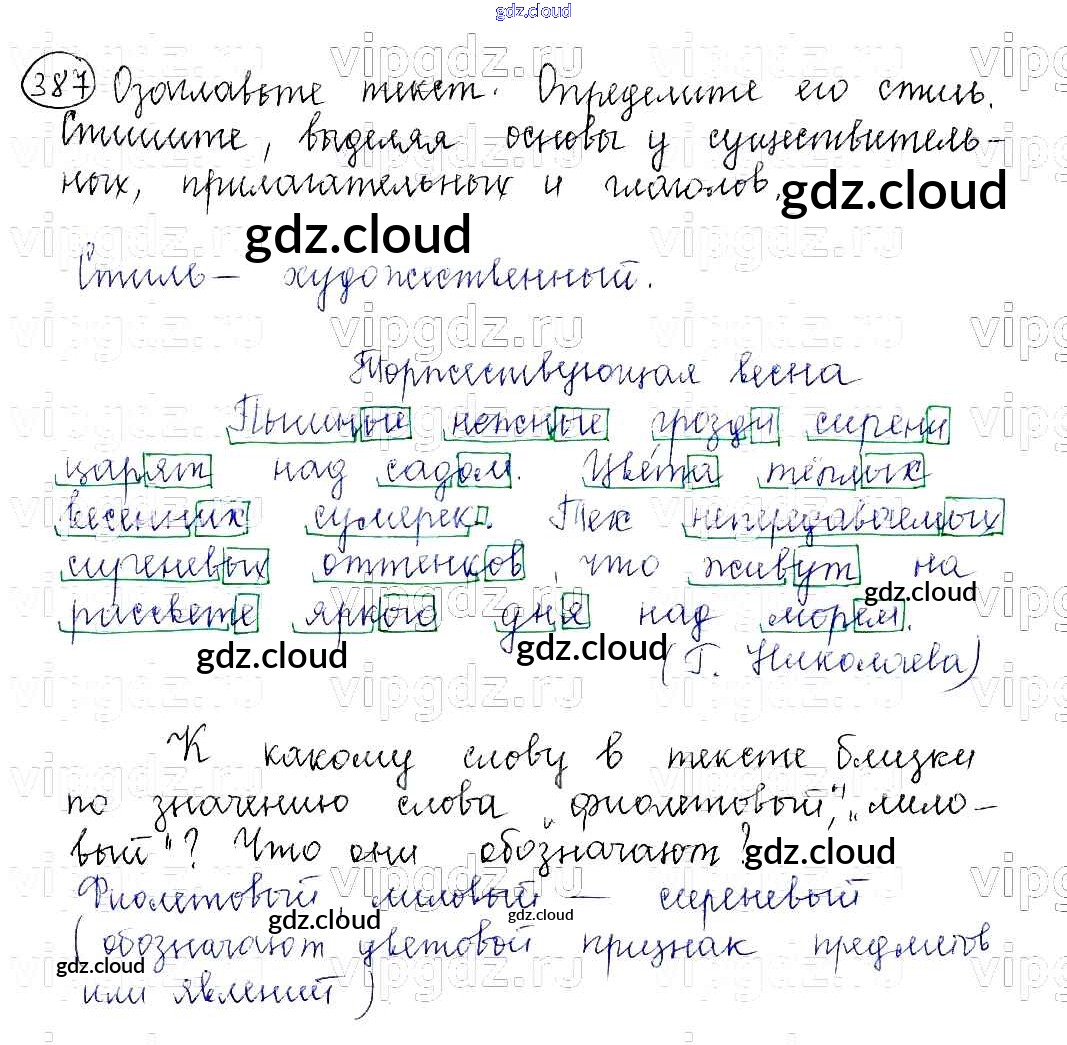 gdz.cloud
387 Озаглавьте текст. Определите его стиль.
Спишите, выделяя основы у существитель-
ных, прилагательных и глаголов.
gdz.cloud
gdz.cloud
Стиль – художественный.
Торжествующая весна
Пышные нежные грозди сирени
царят над садом. Цвета тёплых
весенних сумерек. Тех непередаваемых
сиреневых оттенков, что живут на
рассвете яркого дня над морем.
gdz.cloud
gdz.cloud
gdz.cloud
(Г. Николаева)
К какому слову в тексте близки
по значению слова „фиолетовый", „лило-
вый"? Что они обозначают?
gdz.cloud
Фиолетовый, лиловый – сиреневый
gdz.cloud
gdz.cloud
(обозначают цветовой признак предметов
gdz.cloud
или явлений)
vipgdz.ru